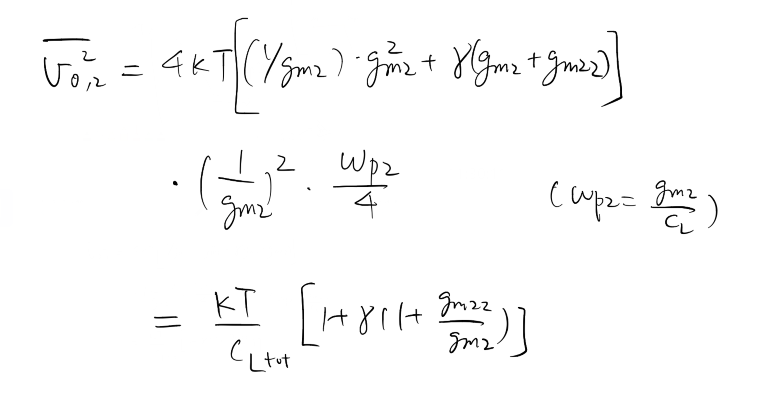 \overline{v_{o,2}^2} = 4kT[(1/g_{m2}) \cdot g_{m2}^2 + γ(g_{m2} + g_{m22})]
\cdot (\frac{1}{g_{m2}})^2 \cdot \frac{ω_{p2}}{4} (ω_{p2} = \frac{g_{m2}}{C_L})
= \frac{kT}{C_{Ltot}} [1 + γ(1 + \frac{g_{m22}}{g_{m2}})]